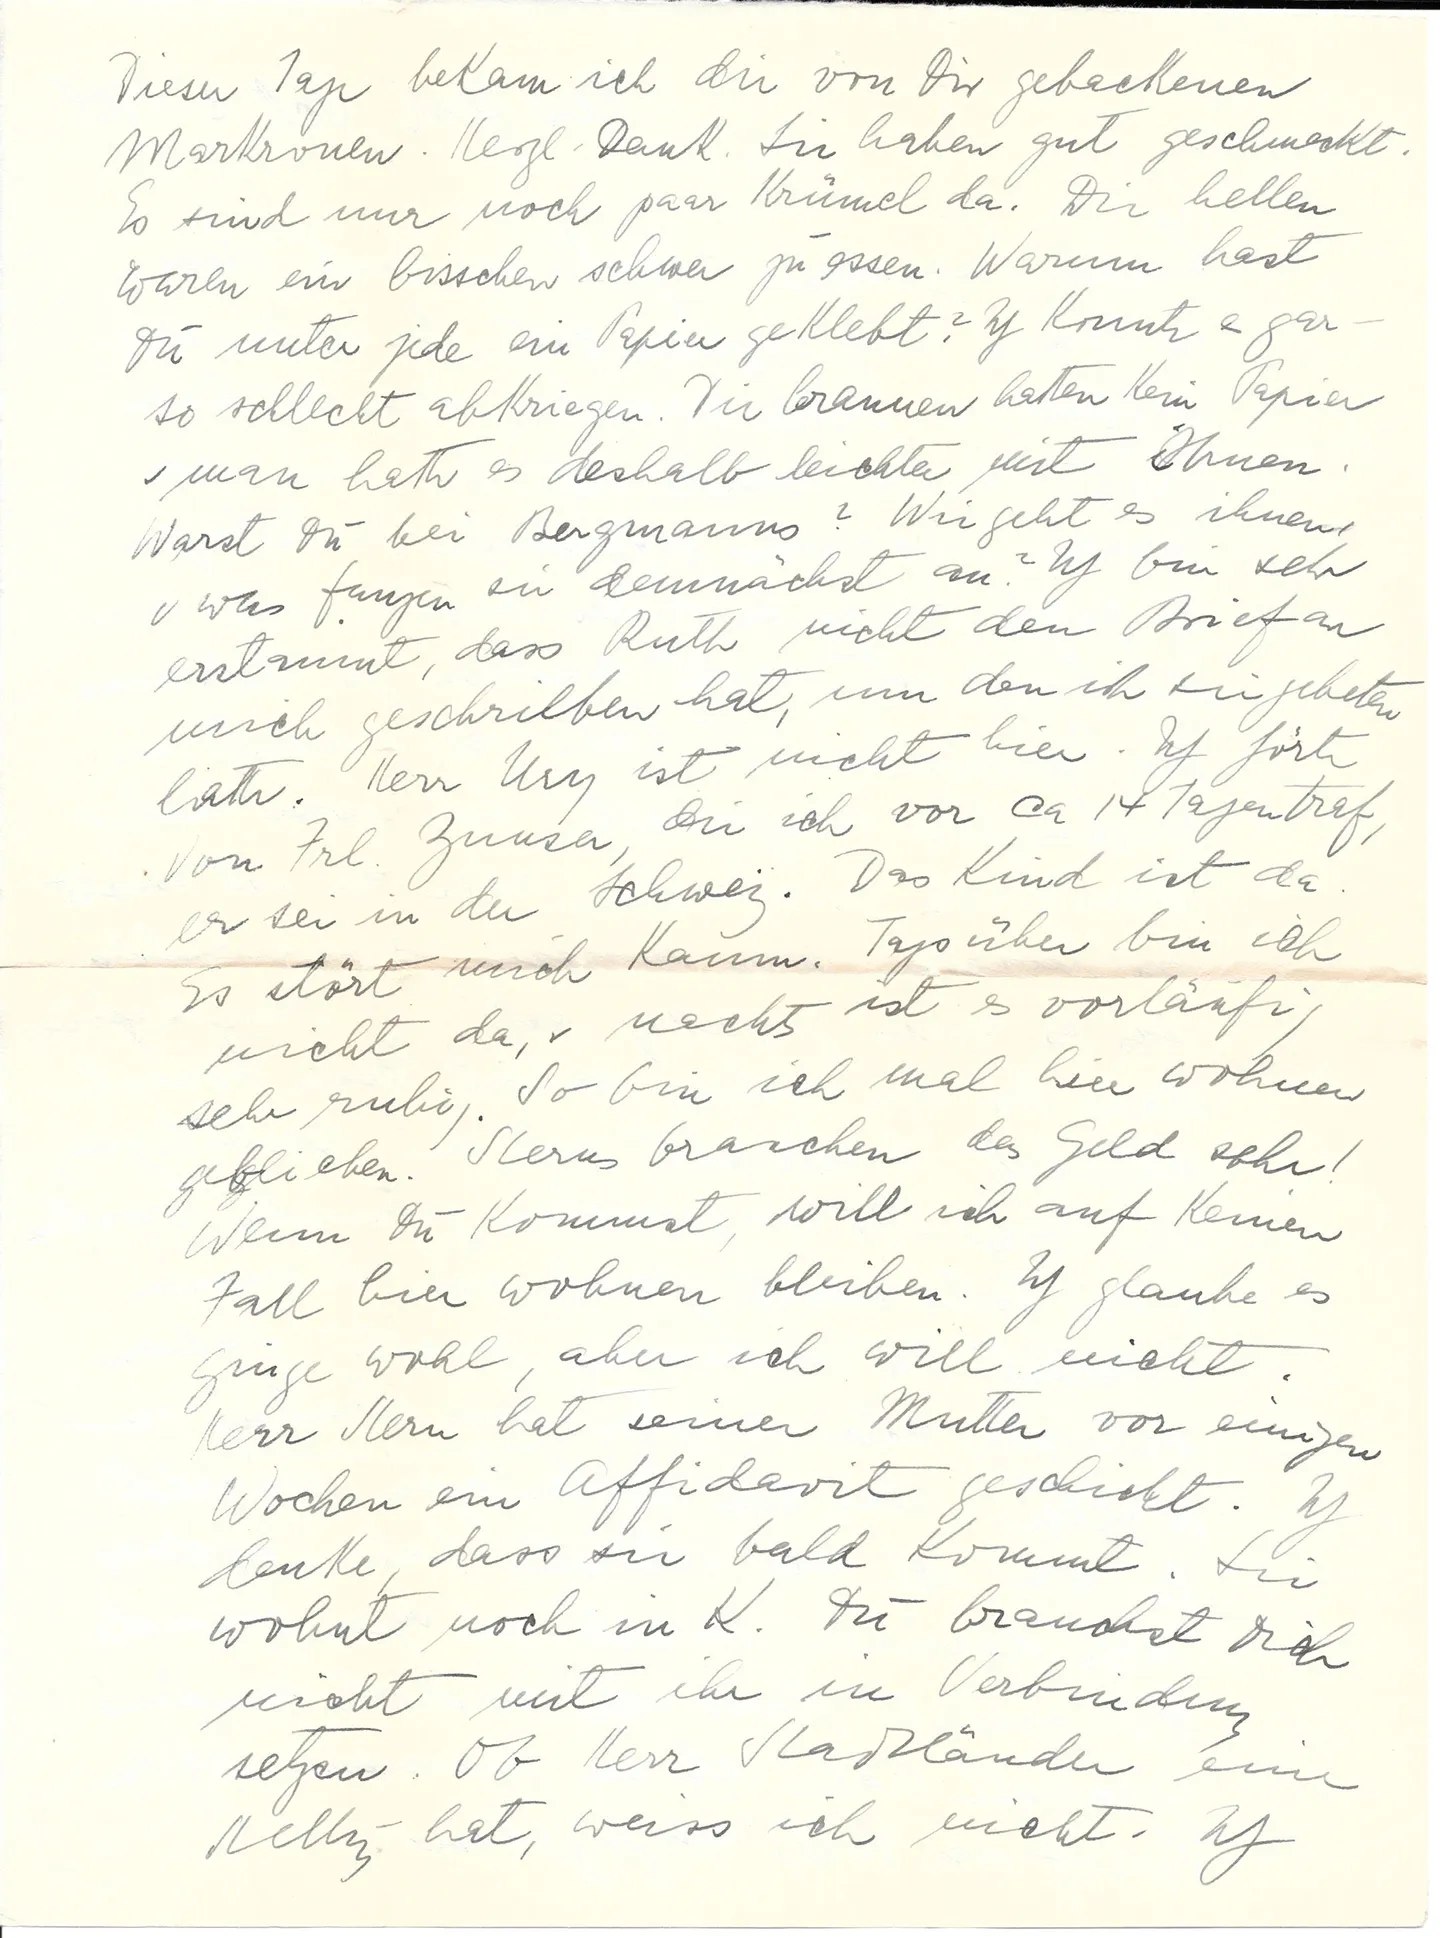 Dieser Tage bekam ich die von Dir gebackenen
Markronen. Herzl. Dank. Sie haben gut geschmeckt.
Es sind nur noch paar Krümel da. Die hellen
waren ein bisschen schwer zu essen. Warum hast
Du unter jede ein Papier geklebt? Ich konnte es gar
so schlecht abkriegen. Die braunen hatten kein Papier
u man hatte es deshalb leichter mit Ihnen.
Warst Du bei Bergmanns? Wie geht es ihnen,
u was fangen sie demnächst an? Ich bin sehr
erstaunt, dass Ruth nicht den Brief an
mich geschrieben hat, um den ich sie gebeten
hatte. Herr Ury ist nicht hier. Ich hörte
von Frl. , die ich vor ca 14 Tagen traf,
er sei in der Schweiz. Das Kind ist da.
Es stört mich kaum. Tagsüber bin ich
nicht da, u nachts ist es vorläufig
sehr ruhig. So bin ich mal hier wohnen
geblieben. Sterns brauchen das Geld sehr!
Wenn Du kommst, will ich auf keinen
Fall hier wohnen bleiben. Ich glaube es
ginge wohl, aber ich will nicht.
Herr Stern hat seiner Mutter vor einigen
Wochen ein Affidavit geschickt. Ich
denke, dass sie bald kommt. Sie
wohnt noch in K. Du brauchst Dich
nicht mit ihr in Verbindung
setzen. Ob Herr Stadtländer eine
hat, weiss ich nicht. Ich